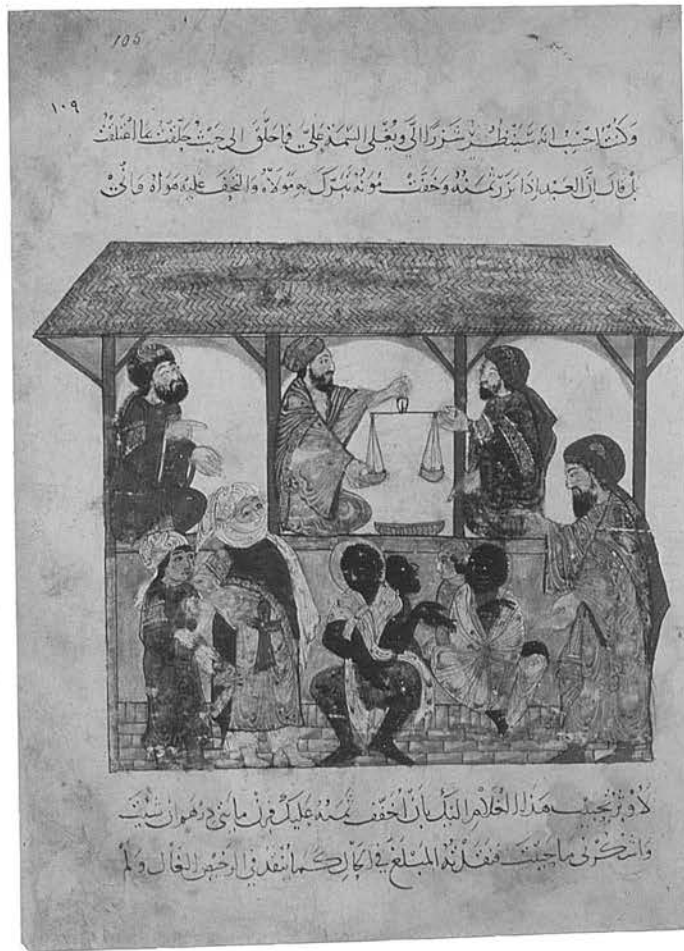 105
١٠٩
وكنت احسب انه سينظر شزرا الي ويغلي السيمة علي فما حلق الى حيث حلقت
بل قال ان العبد اذا نزر ثمنه وخفت مونه تبرك به مولاه والتحف عليه هواه واني
لاوثر تحبيب هذا الغلام اليك بان اخفف ثمنه عليك فزن مائتي درهم ان شيت
واشكر لي ما حييت فنقدته المبلغ في الحال كما ينقد في الرخيص الغال ولم